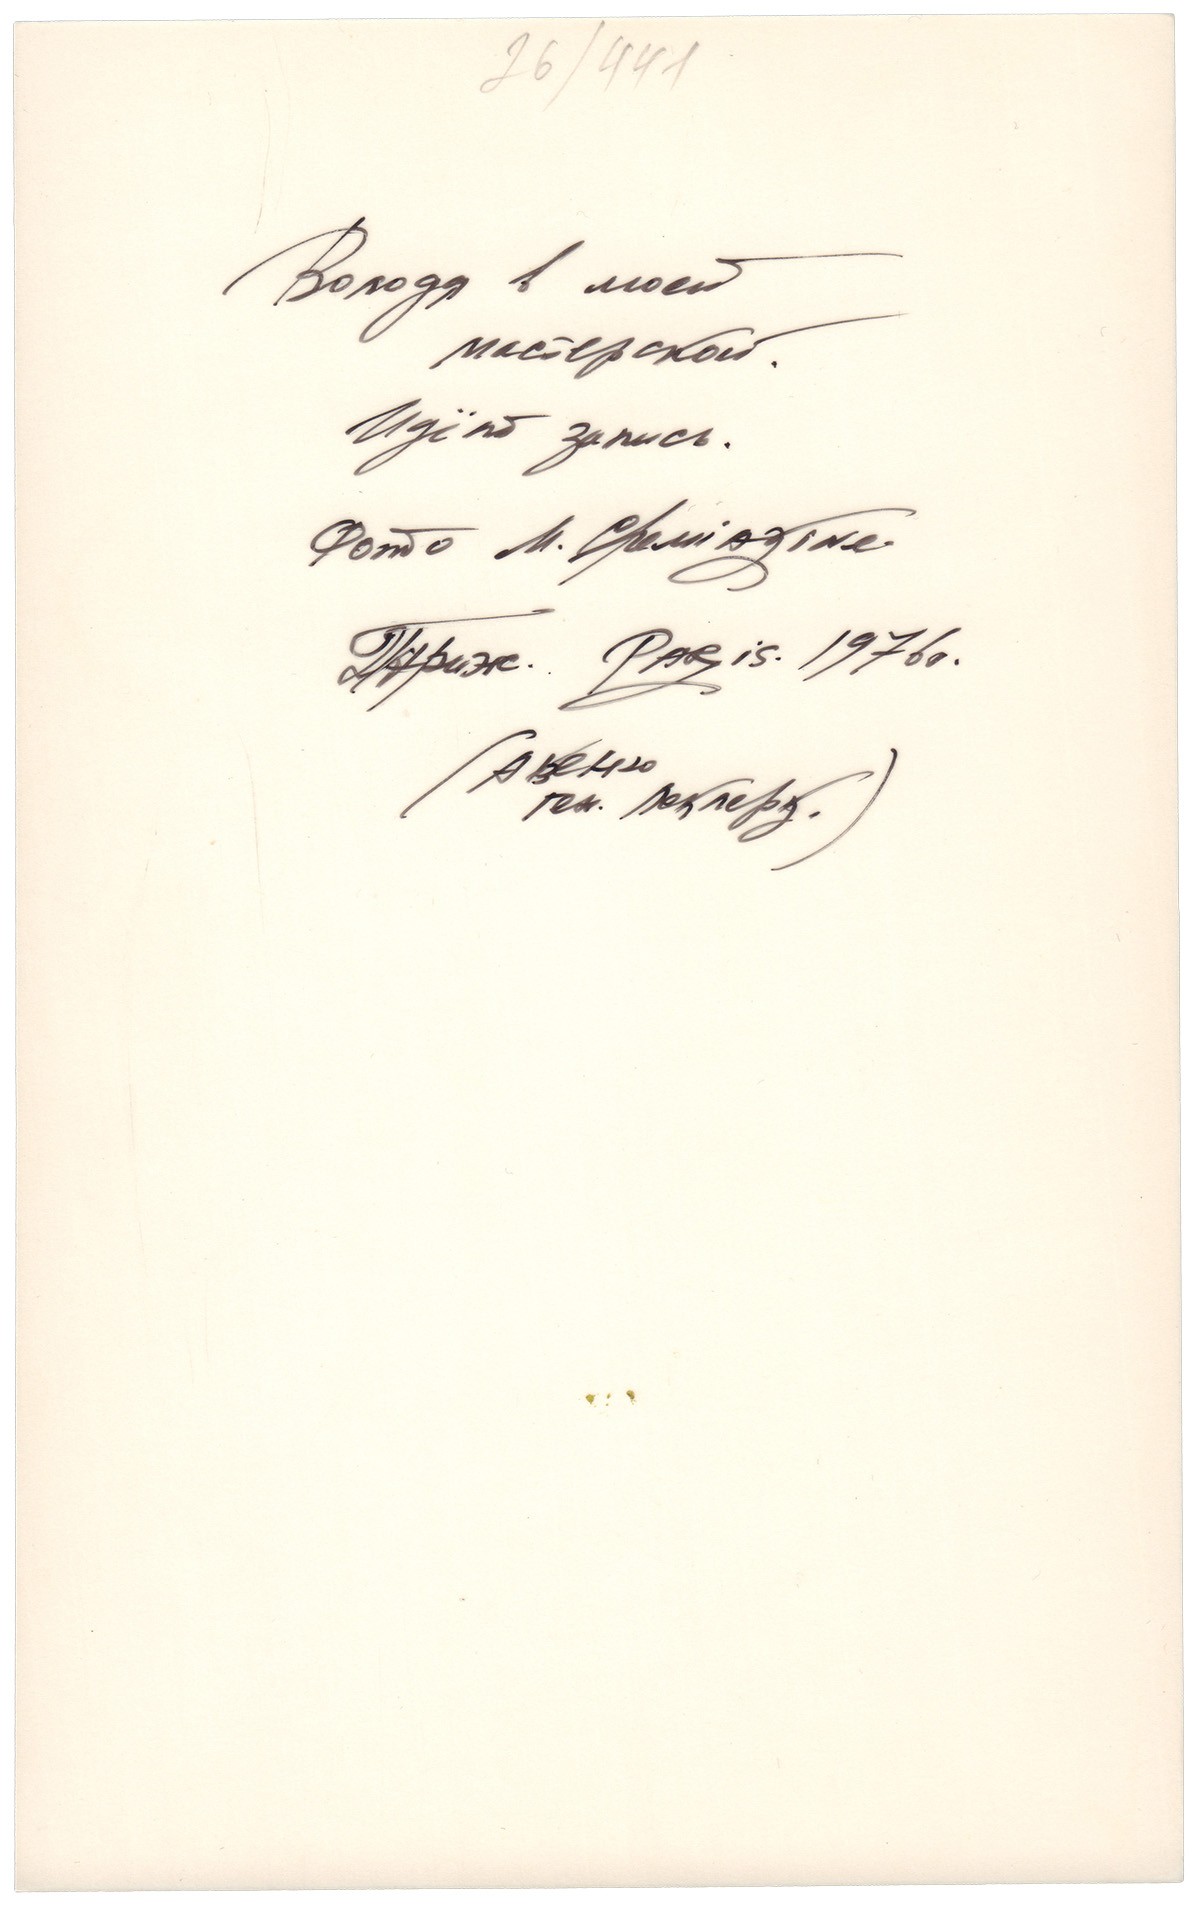 26/441
Володя в моей
мастерской.
Идёт запись.
Фото М.
Париж. Paris. 1976г.
(Авеню
ген. Леклерк.)